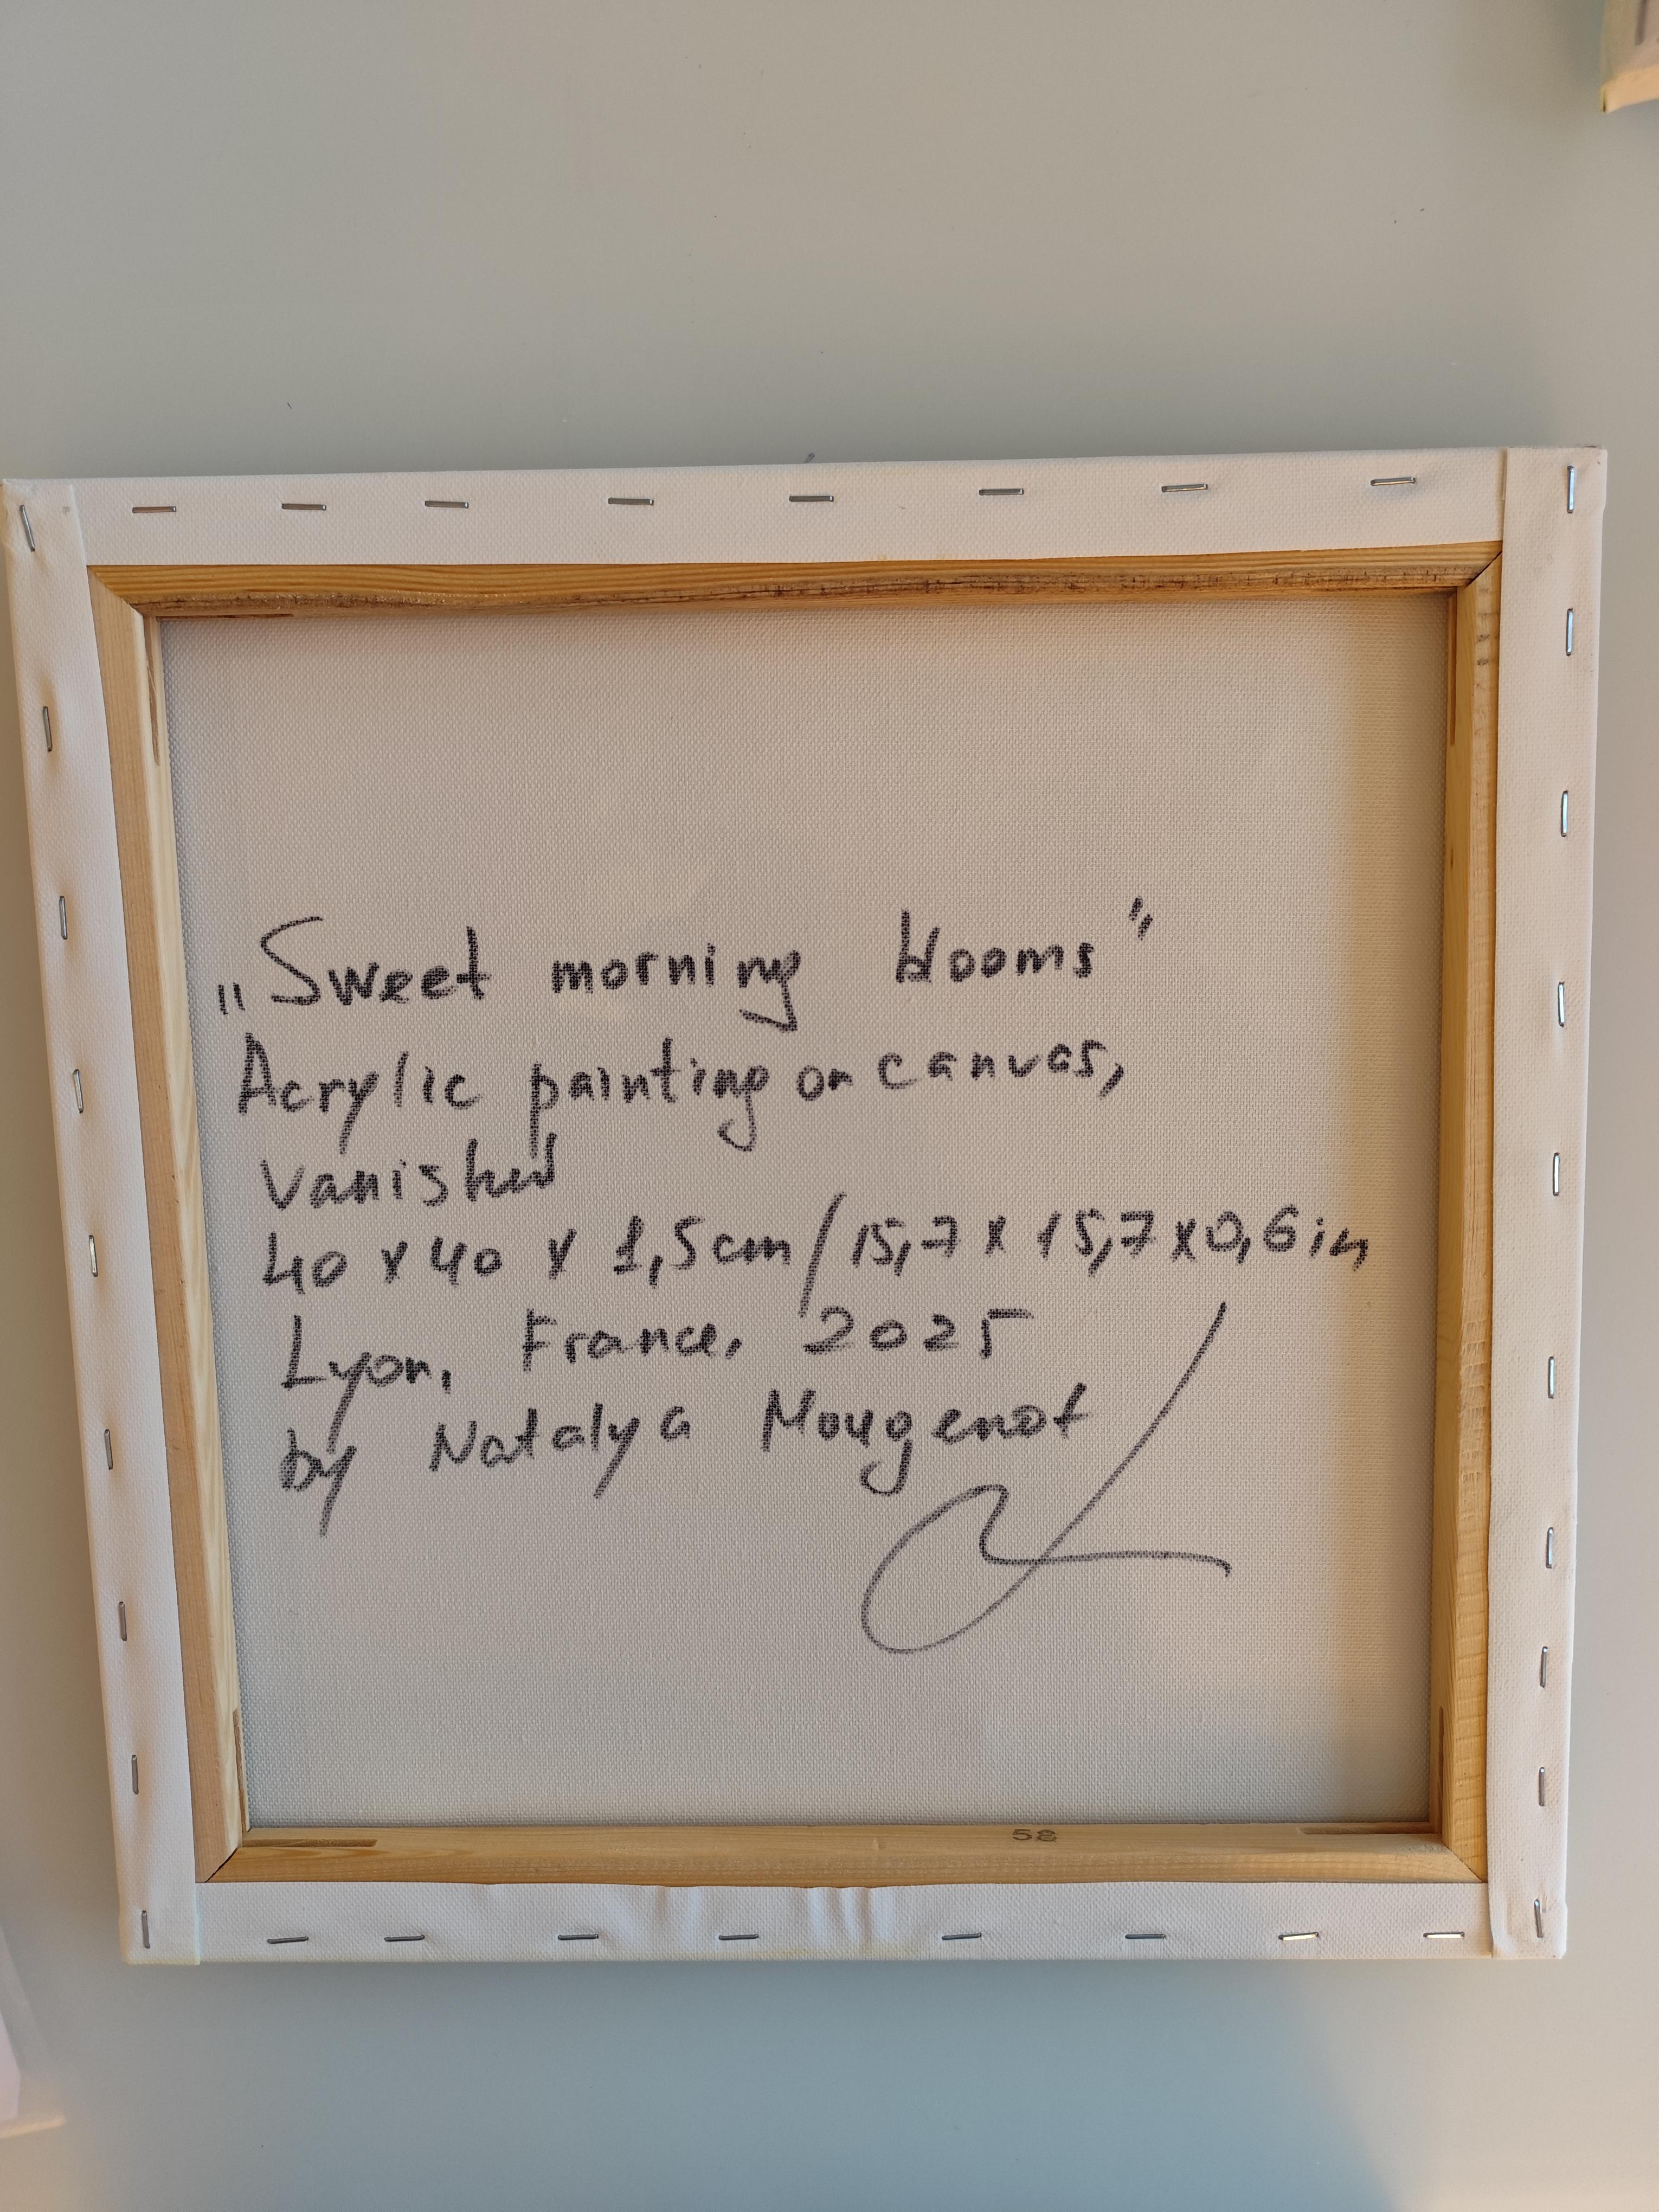 „Sweet morning blooms”
Acrylic painting on canvas,
vanished
40 x 40 x 1,5cm/15,7 x 15,7 x 0,6in
Lyon, France, 2025
by Natalya Mougenot
58